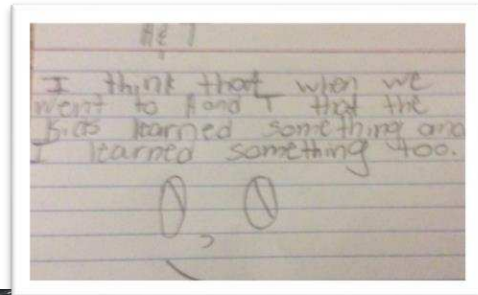 I think that when we
went to A and T that the
kids learned something and
I learned something too.